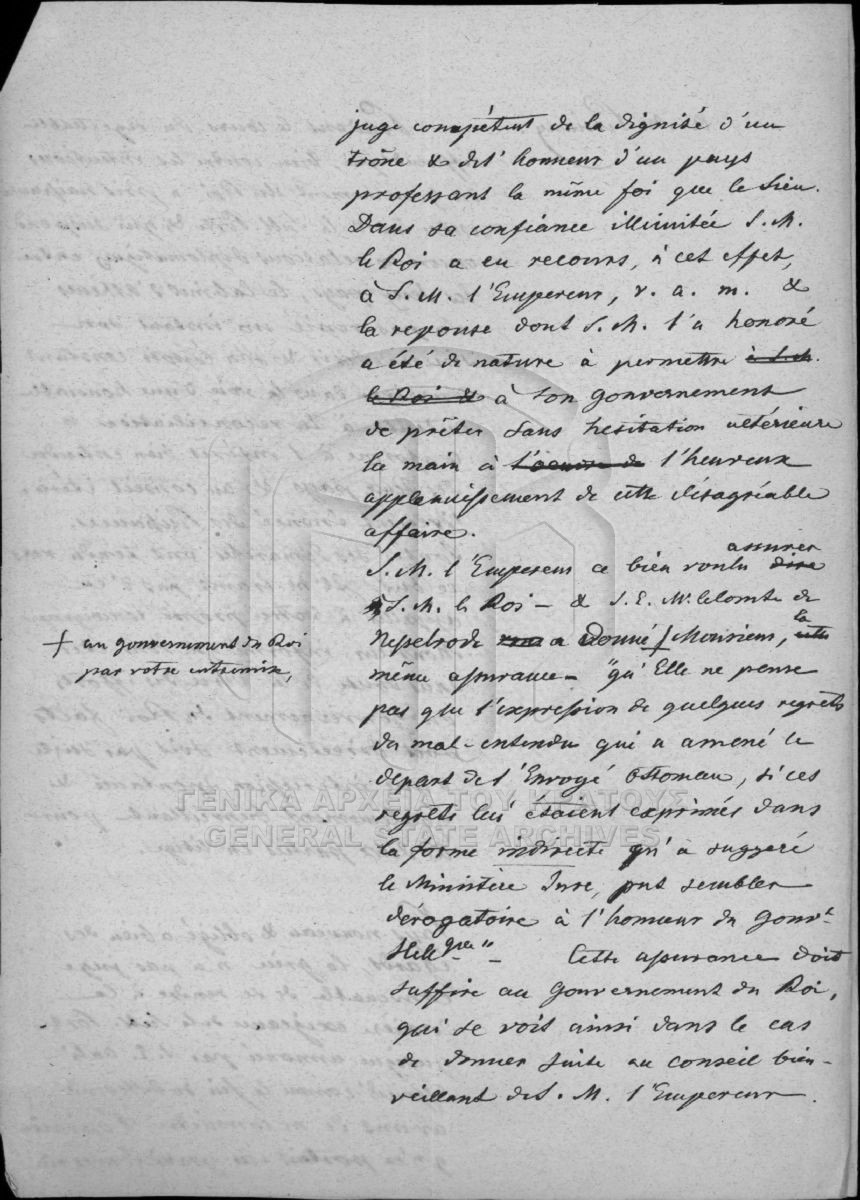 juge compétent de la dignité d'un
trône & de l'honneur d'un pays
professant la même foi que le Sien.
Dans sa confiance illimitée S. M.
le Roi a eu recours, à cet effet,
à S. M. l'Empereur, v. a. m. &
la reponse dont S. M. l'a honoré
a été de nature à permettre à S. M.
le Roi & à son gouvernement
de prêter sans hesitation ultérieure
la main à l'oeuvre de l'heureux
applanissement de cette désagréable
affaire.
assurer
S. M. l'Empereur a bien voulu dire
à S. M. le Roi – & S. E. Mr. le Comte de
Nesselrode a donné Monsieur, cette la
+ au gouvernement du Roi
par votre entremise,
même assurance – "qu'Elle ne pense
pas que l'expression de quelques regrets
du mal-entendu qui a amené le
départ de l'Envoyé Ottoman, si ces
regrets lui étaient exprimés dans
la forme indirecte qu'a suggéré
le Ministère Turc, put sembler
dérogatoire à l'honneur du Gouvt.
Hellque" – Cette assurance doit
suffire au Gouvernement du Roi,
qui se voit ainsi dans le cas
de donner suite au conseil bien-
veillant de S. M. l'Empereur.
ΓΕΝΙΚΑ ΑΡΧΕΙΑ ΤΟΥ ΚΡΑΤΟΥΣ
GENERAL STATE ARCHIVES